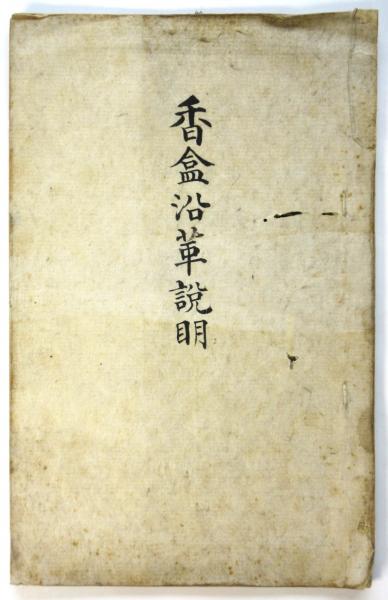 香盒沿革説明